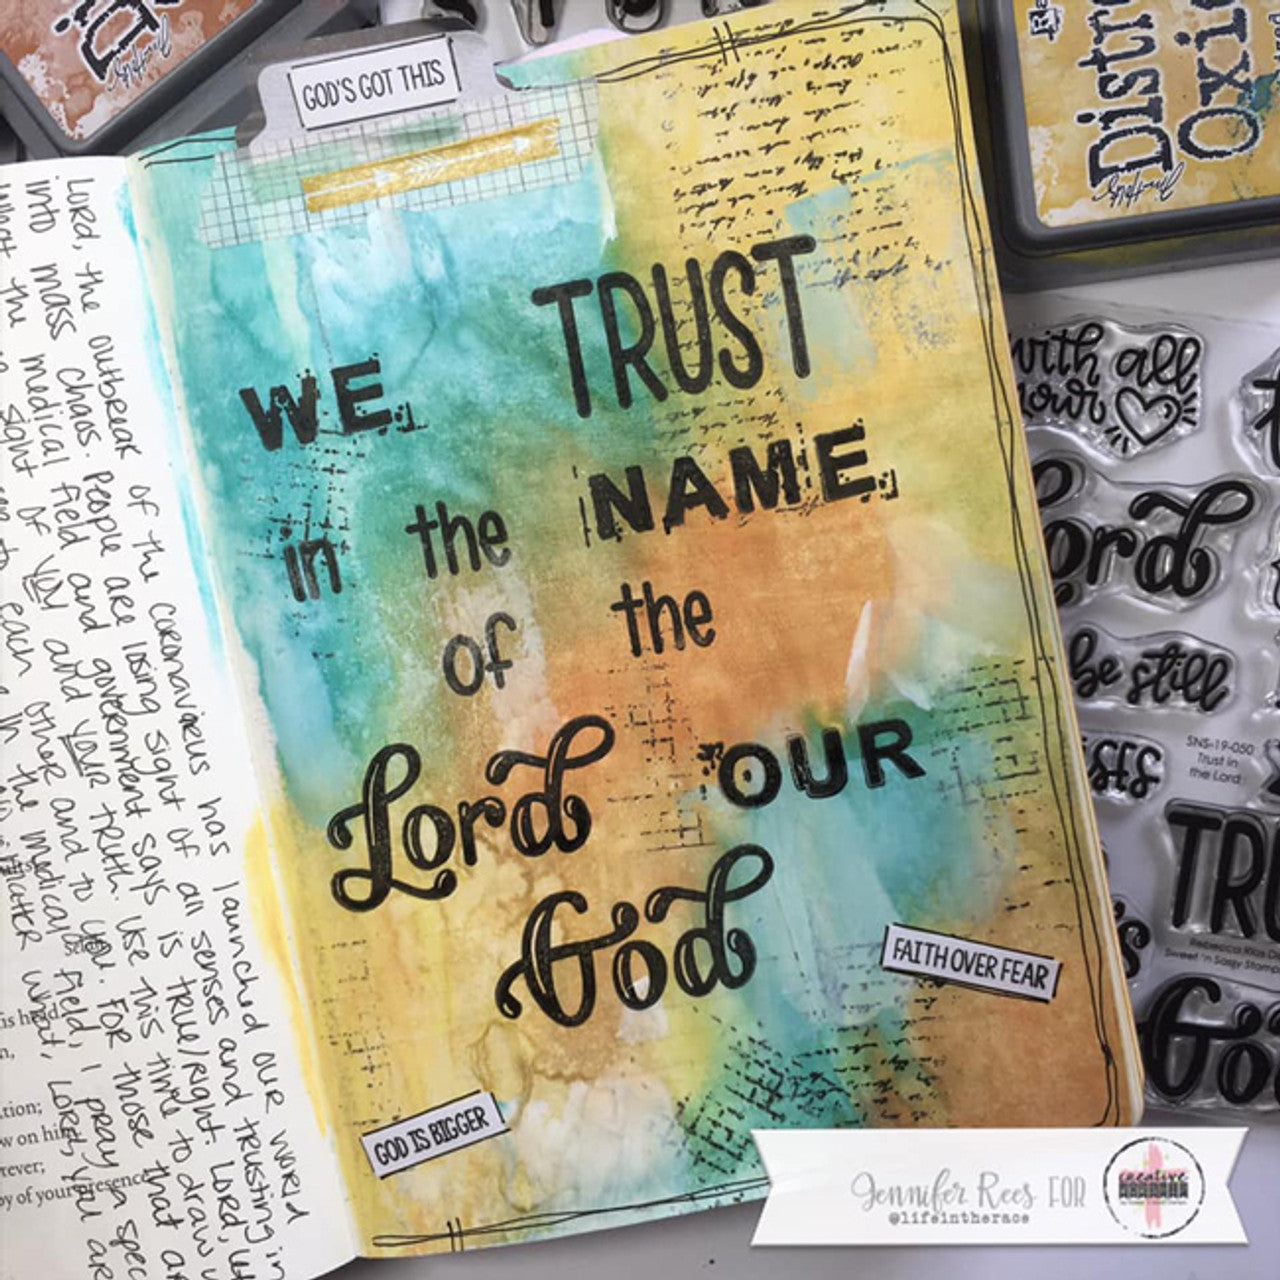 GOD'S GOT THIS
WE TRUST
in the NAME
of the
Lord OUR
God
FAITH OVER FEAR
GOD IS BIGGER
LORD, the outbreak of the coronavirus has launched our world
into mass chaos. People are losing sight of all senses and trusting in
what the medical field and government says is true/right. Lord, let
sight of you and your TRUTH. Use this time to draw
each other and to you. For those that
in the medical field, I pray
what, Lord, you are
is head.
tion;
w on him
rever;
oy of your presence
Distress
Oxide
with all
your
Lord
be still
SNS-19-050
Trust in
the Lord
TRU
Sweet 'n Sassy Stamps
God
Jennifer Rees FOR
@lifeintherace
creative